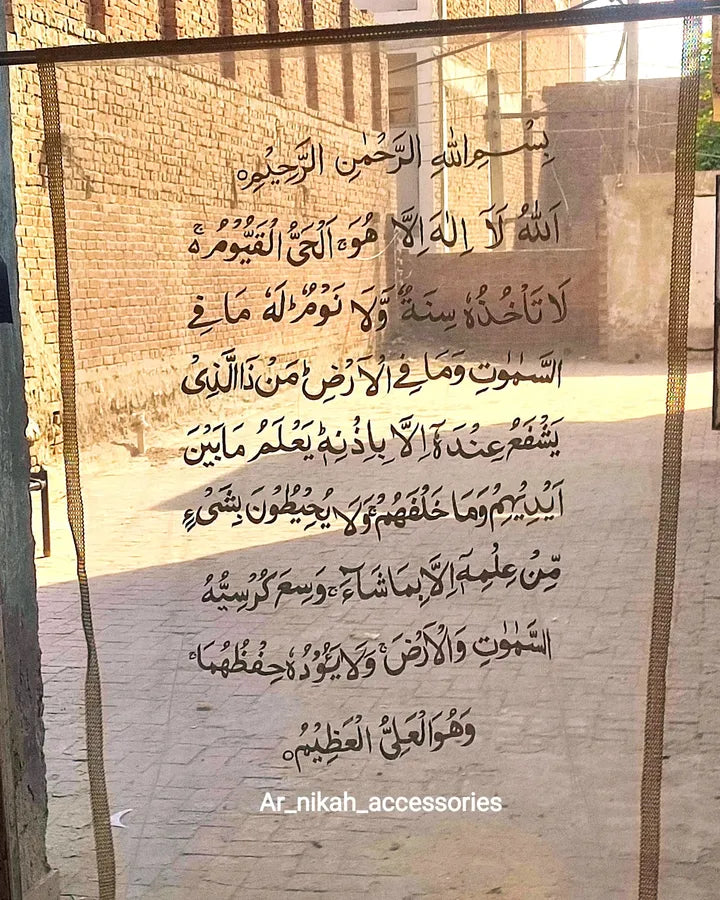 بِسْمِ اللّٰهِ الرَّحْمٰنِ الرَّحِيْمِ۝
اَللّٰهُ لَاۤ اِلٰهَ اِلَّا هُوَ ۚ اَلْحَيُّ الْقَيُّوْمُ ۚ۬
لَا تَاْخُذُهٗ سِنَةٌ وَّلَا نَوْمٌ ؕ لَهٗ مَا فِي
السَّمٰوٰتِ وَمَا فِي الْاَرْضِ ؕ مَنْ ذَا الَّذِيْ
يَشْفَعُ عِنْدَهٗۤ اِلَّا بِاِذْنِهٖ ؕ يَعْلَمُ مَا بَيْنَ
اَيْدِيْهِمْ وَمَا خَلْفَهُمْ ۚ وَلَا يُحِيْطُوْنَ بِشَيْءٍ
مِّنْ عِلْمِهٖۤ اِلَّا بِمَا شَآءَ ۚ وَسِعَ كُرْسِيُّهُ
السَّمٰوٰتِ وَالْاَرْضَ ۚ وَلَا يَـُٔوْدُهٗ حِفْظُهُمَا ۚ
وَهُوَ الْعَلِيُّ الْعَظِيْمُ۝
Ar_nikah_accessories